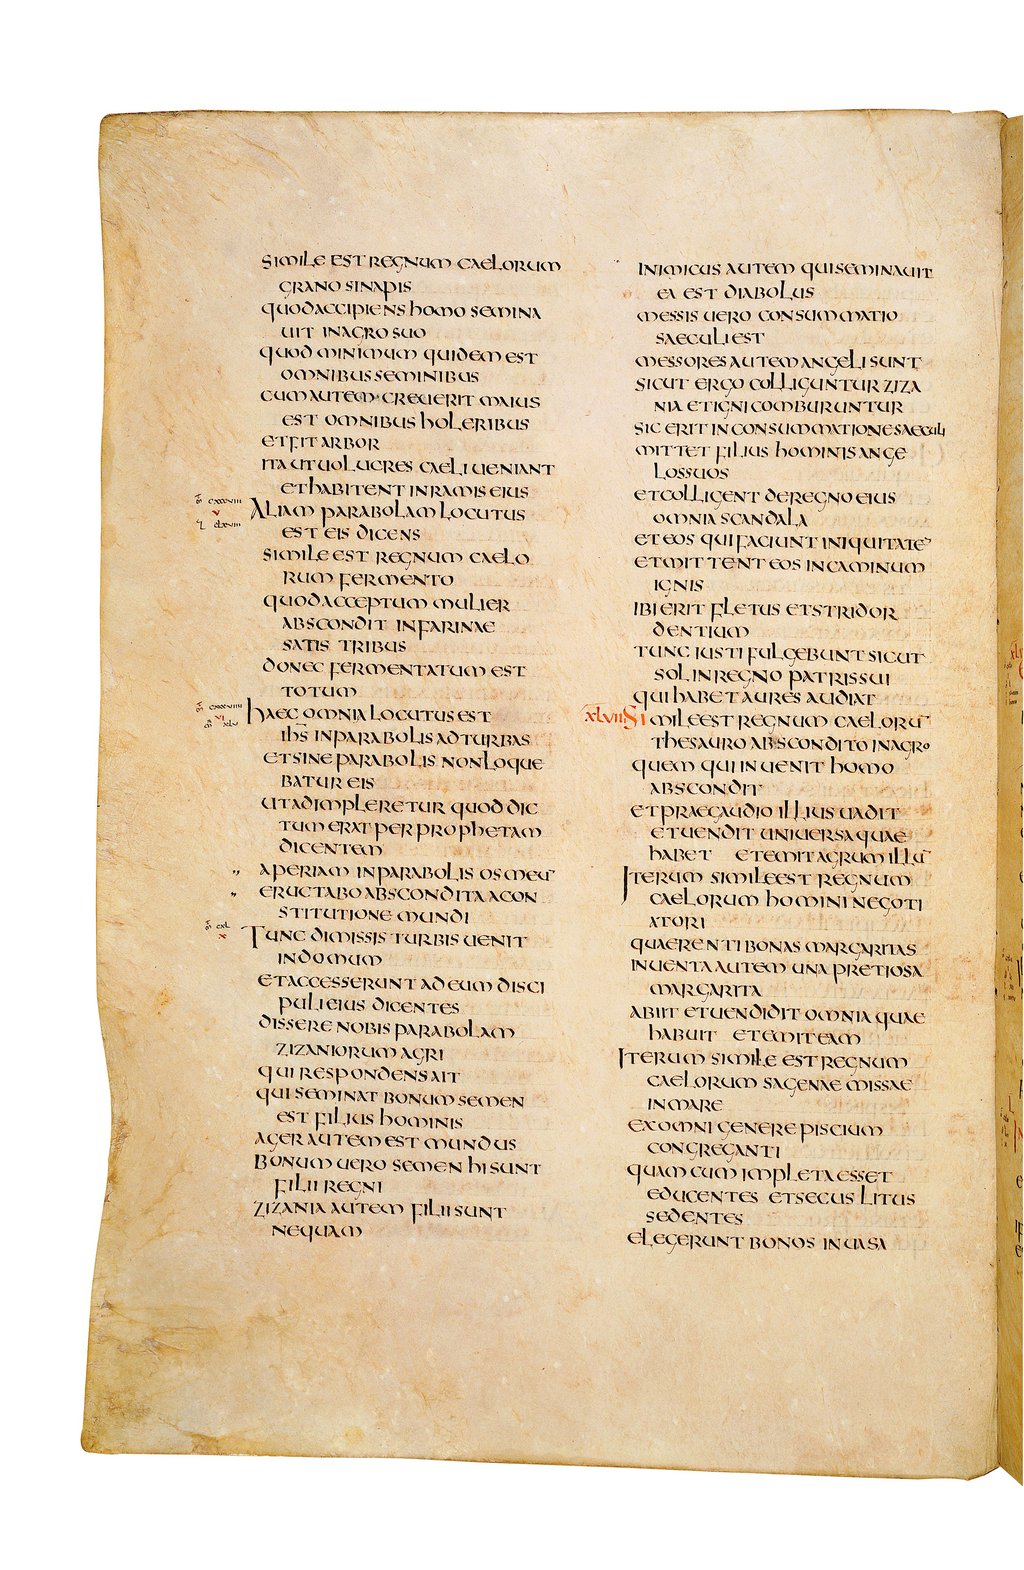 SIMILE EST REGNUM CAELORUM
GRANO SINAPIS
QUOD ACCIPIENS HOMO SEMINA
UIT IN AGRO SUO
QUOD MINIMUM QUIDEM EST
OMNIBUS SEMINIBUS
CUM AUTEM CREUERIT MAIUS
EST OMNIBUS HOLERIBUS
ET FIT ARBOR
ITA UT UOLUCRES CAELI UENIANT
ET HABITENT IN RAMIS EIUS
ALIAM PARABOLAM LOCUTUS
EST EIS DICENS
SIMILE EST REGNUM CAELO
RUM FERMENTO
QUOD ACCEPTUM MULIER
ABSCONDIT IN FARINAE
SATIS TRIBUS
DONEC FERMENTATUM EST
TOTUM
HAEC OMNIA LOCUTUS EST
IHS IN PARABOLIS AD TURBAS
ET SINE PARABOLIS NON LOQUE
BATUR EIS
UT ADIMPLERETUR QUOD DIC
TUM ERAT PER PROPHETAM
DICENTEM
APERIAM IN PARABOLIS OS MEU
ERUCTABO ABSCONDITA A CON
STITUTIONE MUNDI
TUNC DIMISSIS TURBIS UENIT
IN DOMUM
ET ACCESSERUNT AD EUM DISCI
PULI EIUS DICENTES
DISSERE NOBIS PARABOLAM
ZIZANIORUM AGRI
QUI RESPONDENS AIT
QUI SEMINAT BONUM SEMEN
EST FILIUS HOMINIS
AGER AUTEM EST MUNDUS
BONUM UERO SEMEN HI SUNT
FILII REGNI
ZIZANIA AUTEM FILII SUNT
NEQUAM
INIMICUS AUTEM QUI SEMINAUIT
EA EST DIABOLUS
MESSIS UERO CONSUMMATIO
SAECULI EST
MESSORES AUTEM ANGELI SUNT
SICUT ERGO COLLIGUNTUR ZIZA
NIA ET IGNI COMBURUNTUR
SIC ERIT IN CONSUMMATIONE SAECULI
MITTET FILIUS HOMINIS ANGE
LOS SUOS
ET COLLIGENT DE REGNO EIUS
OMNIA SCANDALA
ET EOS QUI FACIUNT INIQUITATE
ET MITTENT EOS IN CAMINUM
IGNIS
IBI ERIT FLETUS ET STRIDOR
DENTIUM
TUNC IUSTI FULGEBUNT SICUT
SOL IN REGNO PATRIS SUI
QUI HABET AURES AUDIAT
XLVII SIMILE EST REGNUM CAELORU
THESAURO ABSCONDITO IN AGRO
QUEM QUI INUENIT HOMO
ABSCONDIT
ET PRAE GAUDIO ILLIUS UADIT
ET UENDIT UNIUERSA QUAE
HABET ET EMIT AGRUM ILLU
ITERUM SIMILE EST REGNUM
CAELORUM HOMINI NEGOTI
ATORI
QUAERENTI BONAS MARGARITAS
INUENTA AUTEM UNA PRETIOSA
MARGARITA
ABIIT ET UENDIDIT OMNIA QUAE
HABUIT ET EMIT EAM
ITERUM SIMILE EST REGNUM
CAELORUM SAGENAE MISSAE
IN MARE
EX OMNI GENERE PISCIUM
CONGREGANTI
QUAM CUM IMPLETA ESSET
EDUCENTES ET SECUS LITUS
SEDENTES
ELEGERUNT BONOS IN UASA